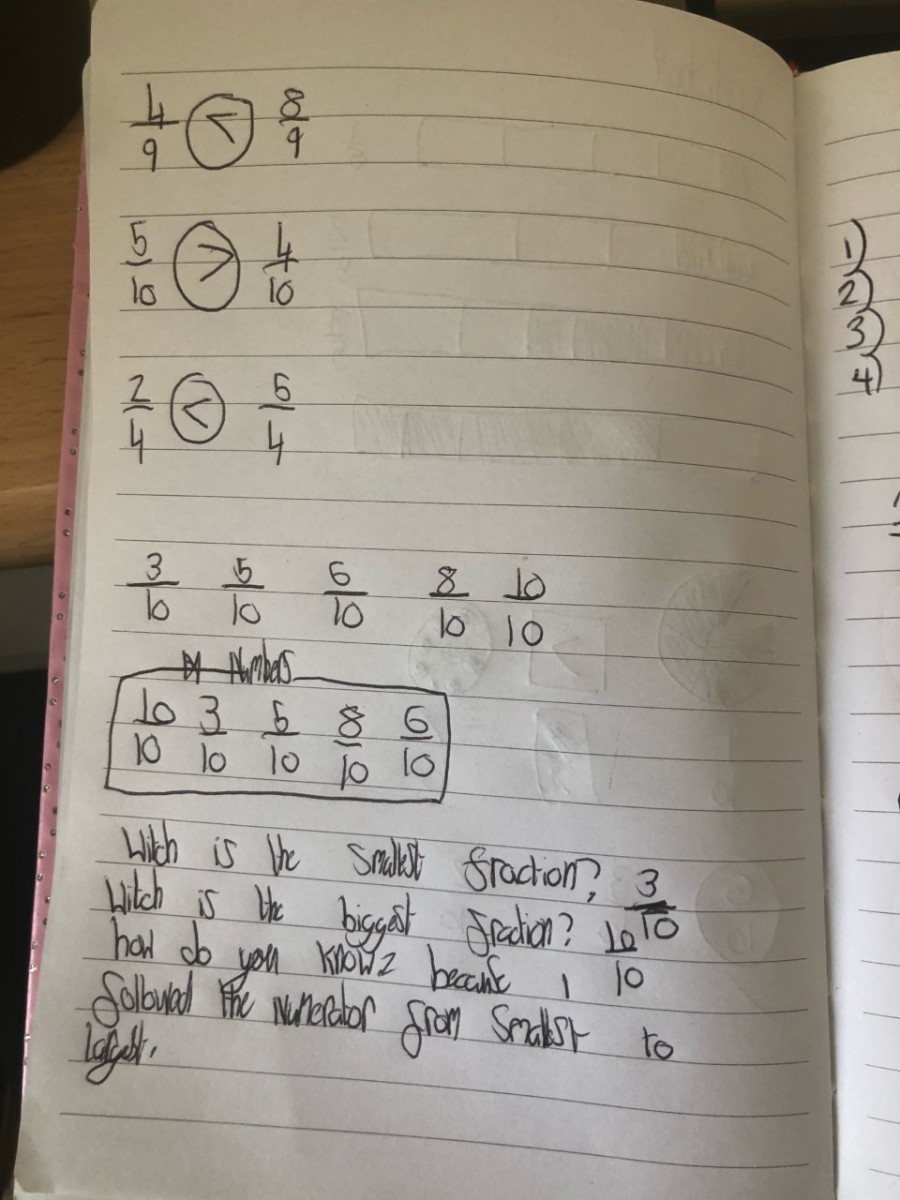 4/9 < 8/9
5/10 > 4/10
2/4 < 5/4
3/10 5/10 6/10 8/10 10/10
Numbers
10/10 3/10 5/10 8/10 6/10
Witch is the Smallest fraction? 3/10
Witch is the biggest fraction? 10/10
how do you know? because i
followed the Numerator from Smallest to
largest.
1)
2)
3)
4)